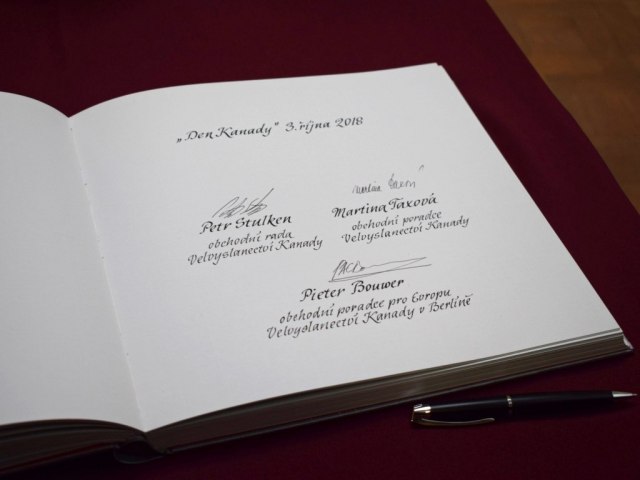 „Den Kanady“ 3. října 2018
Petr Stulken
obchodní rada
Velvyslanectví Kanady
Martina Taxová
obchodní poradce
Velvyslanectví Kanady
Pieter Bouwer
obchodní poradce pro Evropu
Velvyslanectví Kanady v Berlíně